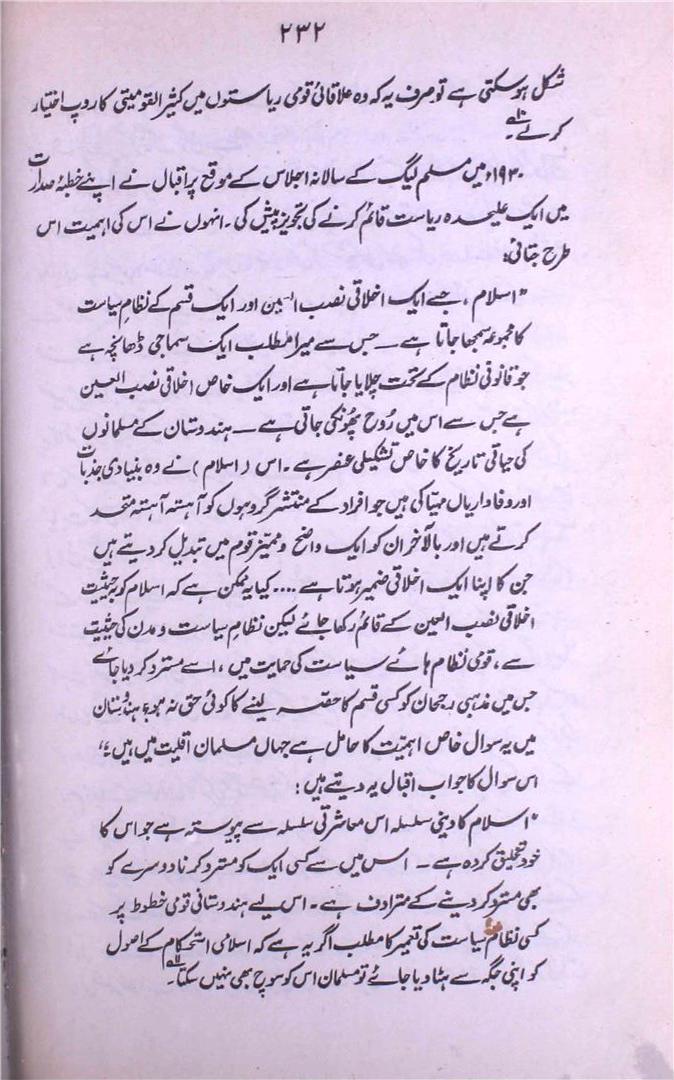 ۲۳۲
شکل ہوسکتی ہے تو صرف یہ کہ وہ علاقائی قومی ریاستوں میں کثیر القومیتی کا روپ اختیار
کرلے۔
۱۹۳۰ء میں مسلم لیگ کے سالانہ اجلاس کے موقع پر اقبال نے اپنے خطبۂ صدارت
میں ایک علیحدہ ریاست قائم کرنے کی تجویز پیش کی۔ انہوں نے اس کی اہمیت اس
طرح جتائی:
"اسلام، جسے ایک اخلاقی نصب العین اور ایک قسم کے نظامِ سیاست
کا مجموعہ سمجھا جاتا ہے ــ جس سے میرا مطلب ایک سماجی ڈھانچہ ہے
جو قانونی نظام کے تحت چلایا جاتا ہے اور ایک خاص اخلاقی نصب العین
ہے جس سے اس میں رُوح پھُونکی جاتی ہے ــ ہندوستان کے مسلمانوں
کی حیاتی تاریخ کا خاص تشکیلی عنصر ہے۔ اس (اسلام) نے وہ بنیادی جذبات
اور وفاداریاں مہیّا کی ہیں جو افراد کے منتشر گروہوں کو آہستہ آہستہ متحد
کرتے ہیں اور بالآخر ان کو ایک واضح و ممیّز قوم میں تبدیل کر دیتے ہیں
جن کا اپنا ایک اخلاقی ضمیر ہوتا ہے .... کیا یہ ممکن ہے کہ اسلام کو بحیثیت
اخلاقی نصب العین کے قائم رکھا جائے لیکن نظامِ سیاست و مدن کی حیثیت
سے، قومی نظام ہائے سیاست کی حمایت میں، اسے مسترد کر دیا جائے
جس میں مذہبی رجحان کو کسی قسم کا حصّہ لینے کا کوئی حق نہ ہو؟ ہندوستان
میں یہ سوال خاص اہمیّت کا حامل ہے جہاں مسلمان اقلیت میں ہیں؟"
اس سوال کا جواب اقبال یہ دیتے ہیں:
"اسلام کا دینی سلسلہ اس معاشرتی سلسلہ سے پیوستہ ہے جو اس کا
خود تخلیق کردہ ہے ــ اس میں سے کسی ایک کو مسترد کرنا دوسرے کو
بھی مسترد کر دینے کے مترادف ہے۔ اس لیے ہندوستانی قومی خطوط پر
کسی نظامِ سیاست کی تعمیر کا مطلب اگر یہ ہے کہ اسلامی استحکام کے اصول
کو اپنی جگہ سے ہٹا دیا جائے تو مسلمان اس کو سوچ بھی نہیں سکتا۔